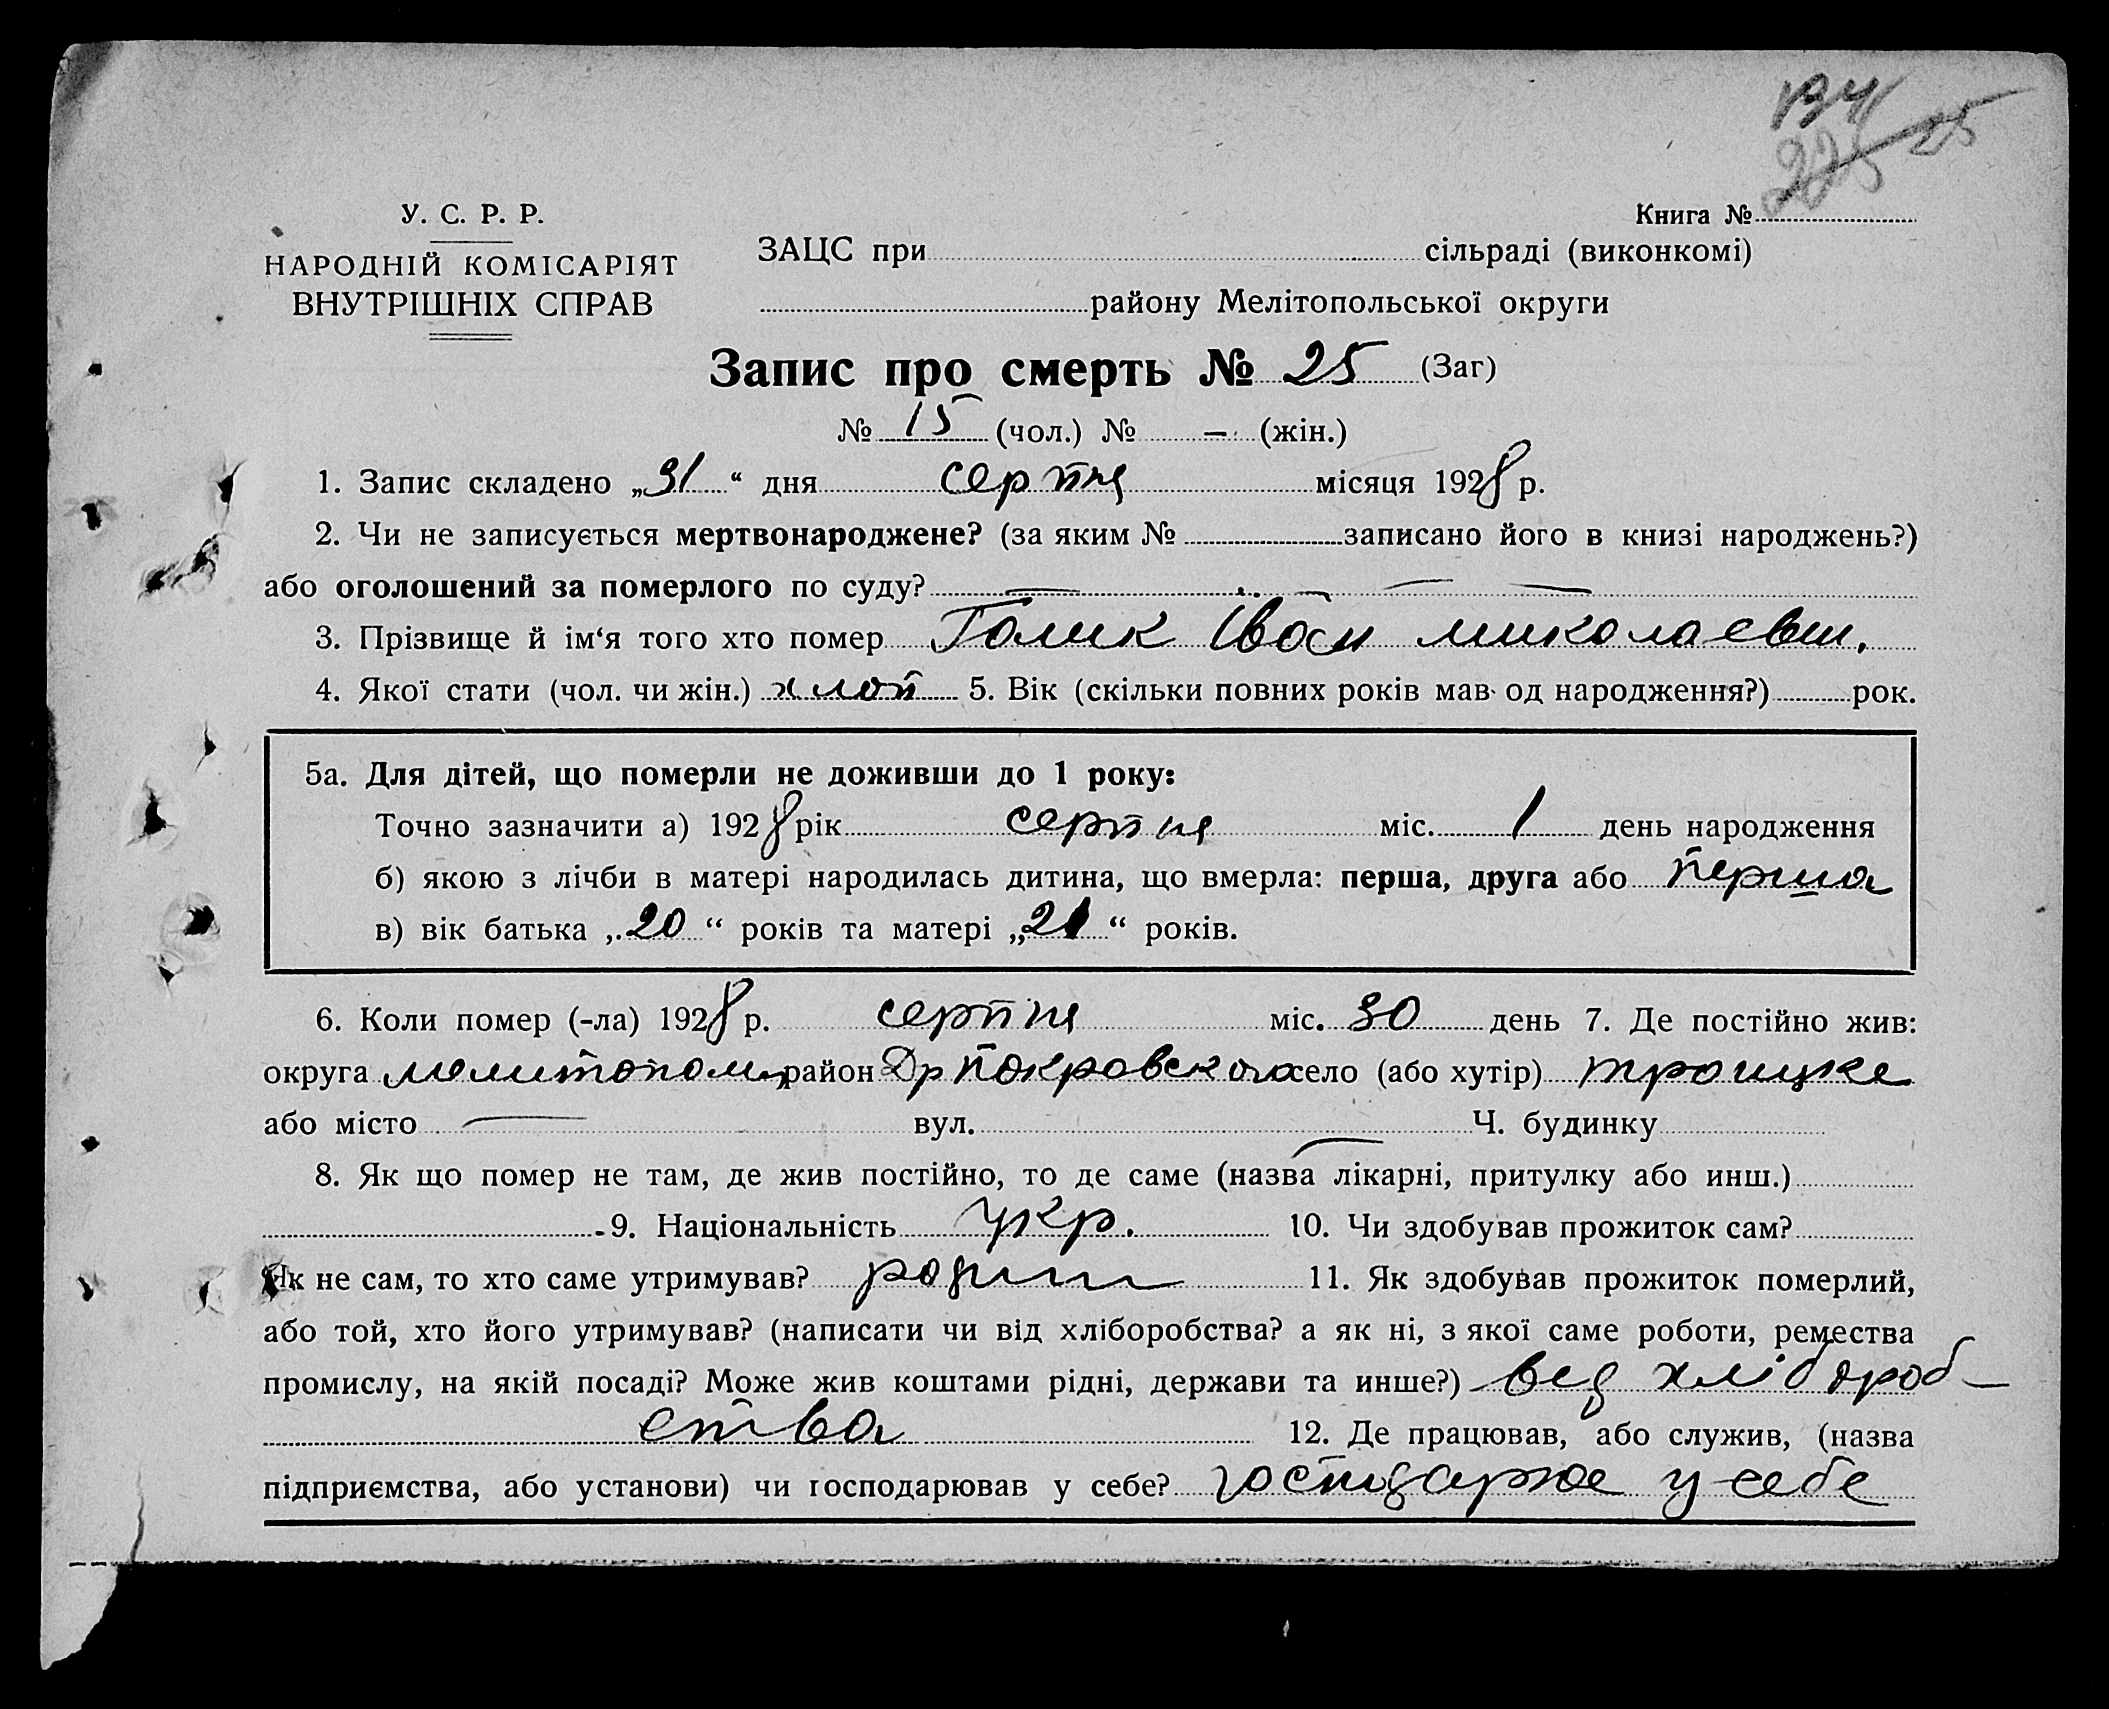 194
225 25
У. С. Р. Р.
Книга №
НАРОДНІЙ КОМІСАРІЯТ
ВНУТРІШНІХ СПРАВ
ЗАЦС при сільраді (виконкомі)
району Мелітопольської округи
Запис про смерть № 25 (Заг)
№ 15 (чол.) № — (жін.)
1. Запис складено „31“ дня серпня місяця 1928 р.
2. Чи не записується мертвонароджене? (за яким № записано його в книзі народжень?)
або оголошений за померлого по суду?
3. Прізвище й ім‘я того хто помер Голик Іван миколаевич,
4. Якої стати (чол. чи жін.) хлоп 5. Вік (скільки повних років мав од народження?) рок.
5а. Для дітей, що померли не доживши до 1 року:
Точно зазначити а) 1928 рік серпня міс. 1 день народження
б) якою з лічби в матері народилась дитина, що вмерла: перша, друга або перша
в) вік батька „20“ років та матері „21“ років.
6. Коли помер (-ла) 1928 р. серпня міс. 30 день 7. Де постійно жив:
округа район Др покровского село (або хутір) троицке
або місто — вул. Ч. будинку
8. Як що помер не там, де жив постійно, то де саме (назва лікарні, притулку або инш.)
9. Національність укр. 10. Чи здобував прожиток сам?
Як не сам, то хто саме утримував? 11. Як здобував прожиток померлий,
або той, хто його утримував? (написати чи від хліборобства? а як ні, з якої саме роботи, ремества
промислу, на якій посаді? Може жив коштами рідні, держави та инше?) вед хлібороб-
ства 12. Де працював, або служив, (назва
підприємства, або установи) чи господарював у себе? господарюе у себе